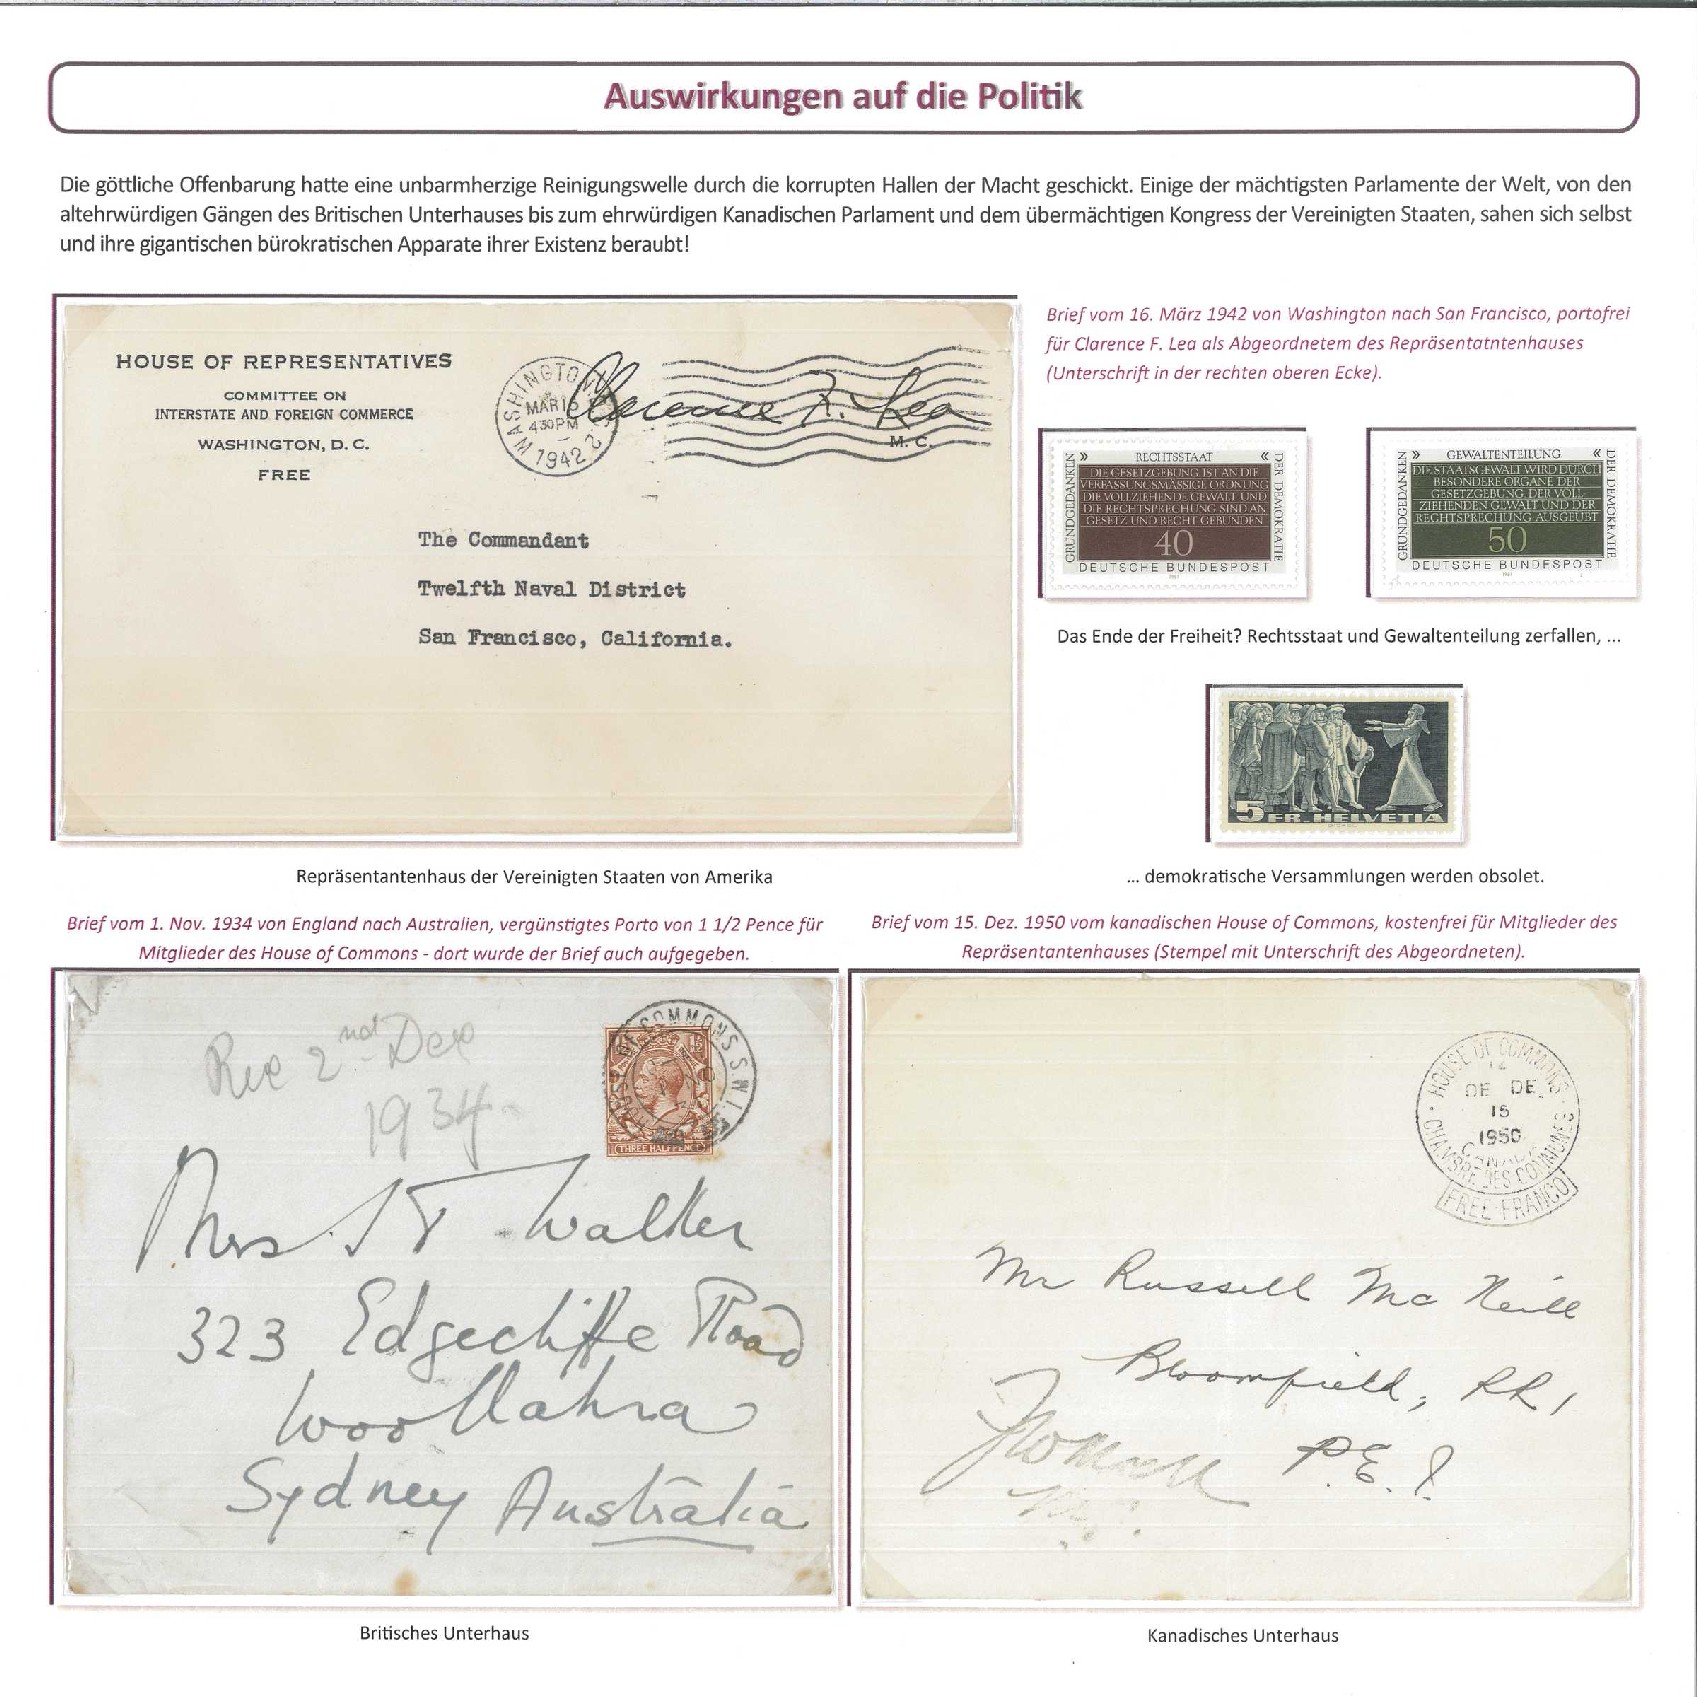 Auswirkungen auf die Politik
Die göttliche Offenbarung hatte eine unbarmherzige Reinigungswelle durch die korrupten Hallen der Macht geschickt. Einige der mächtigsten Parlamente der Welt, von den
altehrwürdigen Gängen des Britischen Unterhauses bis zum ehrwürdigen Kanadischen Parlament und dem übermächtigen Kongress der Vereinigten Staaten, sahen sich selbst
und ihre gigantischen bürokratischen Apparate ihrer Existenz beraubt!
HOUSE OF REPRESENTATIVES
COMMITTEE ON
INTERSTATE AND FOREIGN COMMERCE
WASHINGTON, D. C.
FREE
WASHINGTON
MAR 16
4 30 PM
1942
Clarence F. Lea
M. C.
The Commandant
Twelfth Naval District
San Francisco, California.
Repräsentantenhaus der Vereinigten Staaten von Amerika
Brief vom 16. März 1942 von Washington nach San Francisco, portofrei
für Clarence F. Lea als Abgeordnetem des Repräsentatntenhauses
(Unterschrift in der rechten oberen Ecke).
GRUNDGEDANKEN
» RECHTSSTAAT «
DER DEMOKRATIE
DIE GESETZGEBUNG IST AN DIE
VERFASSUNGSMÄSSIGE ORDNUNG
DIE VOLLZIEHENDE GEWALT UND
DIE RECHTSPRECHUNG SIND AN
GESETZ UND RECHT GEBUNDEN
40
DEUTSCHE BUNDESPOST
GRUNDGEDANKEN
» GEWALTENTEILUNG «
DER DEMOKRATIE
DIE STAATSGEWALT WIRD DURCH
BESONDERE ORGANE DER
GESETZGEBUNG, DER VOLL-
ZIEHENDEN GEWALT UND DER
RECHTSPRECHUNG AUSGEÜBT
50
DEUTSCHE BUNDESPOST
Das Ende der Freiheit? Rechtsstaat und Gewaltenteilung zerfallen, ...
5 FR. HELVETIA
... demokratische Versammlungen werden obsolet.
Brief vom 1. Nov. 1934 von England nach Australien, vergünstigtes Porto von 1 1/2 Pence für
Mitglieder des House of Commons - dort wurde der Brief auch aufgegeben.
Rec 2nd Dec
1934
HOUSE OF COMMONS S.W.1.
THREE HALFPENCE
Mrs S T Walker
323 Edgecliffe Road
Woollahra
Sydney Australia
Britisches Unterhaus
Brief vom 15. Dez. 1950 vom kanadischen House of Commons, kostenfrei für Mitglieder des
Repräsentantenhauses (Stempel mit Unterschrift des Abgeordneten).
HOUSE OF COMMONS
12
DE DE.
15
1950
CANADA
CHAMBRE DES COMMUNES
FREE-FRANCO
Mr Russell McNeill
Bloomfield, RR1
P.E.I.
Kanadisches Unterhaus